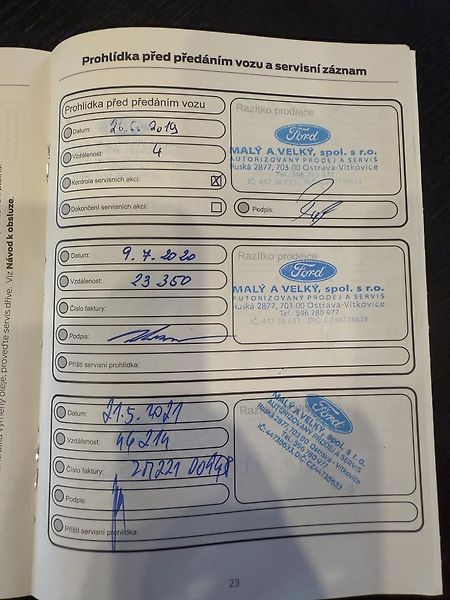 Prohlídka před předáním vozu a servisní záznam
Prohlídka před předáním vozu
Datum: 2019
Vzdálenost: 4
Kontrola servisních akcí: X
Dokončení servisních akcí:
Razítko prodejce
Ford
MALÝ A VELKÝ, spol. s r.o.
AUTORIZOVANÝ PRODEJ A SERVIS
Ruská 2877, 703 00 Ostrava-Vítkovice
Tel.: 596 780 977
Podpis:
Datum: 9. 7. 2020
Vzdálenost: 23 350
Číslo faktury:
Podpis:
Příští servisní prohlídka:
Razítko prodejce
Ford
MALÝ A VELKÝ, spol. s r.o.
AUTORIZOVANÝ PRODEJ A SERVIS
Ruská 2877, 703 00 Ostrava-Vítkovice
Tel.: 596 780 977
IČ: 447 38 633 DIČ: CZ44738633
Datum: 21.5.2021
Vzdálenost: 44 214
Číslo faktury:
Podpis:
Příští servisní prohlídka:
Ford
MALÝ A VELKÝ, spol. s r.o.
AUTORIZOVANÝ PRODEJ A SERVIS
Ruská 2877, 703 00 Ostrava - Vítkovice
Tel. 596 780 977
IČ: 44738633, DIČ: CZ44738633
23
Viz Návod k obsluze.
výměny oleje, proveďte servis dříve.